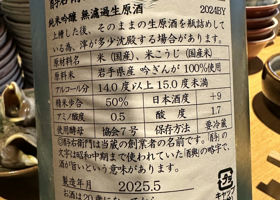 2024BY
純米吟醸 無濾過生原酒
上槽した後、そのままの生原酒を瓶詰めして
いる為、滓が多少沈殿する場合があります。
原材料名 米(国産)、米こうじ(国産米)
原料米 岩手県産 吟ぎんが 100%使用
アルコール分 14.0度以上15.0度未満
精米歩合 50% 日本酒度 +9
アミノ酸度 0.5 酸度 1.7
使用酵母 協会7号 保存方法 要冷蔵
は当蔵の創業者の名前で、
文字は昭和中期まで使われていた「酉與」の略字で、
酒が旨いという意味があります。
製造年月 2025.5
お酒は20歳になってから